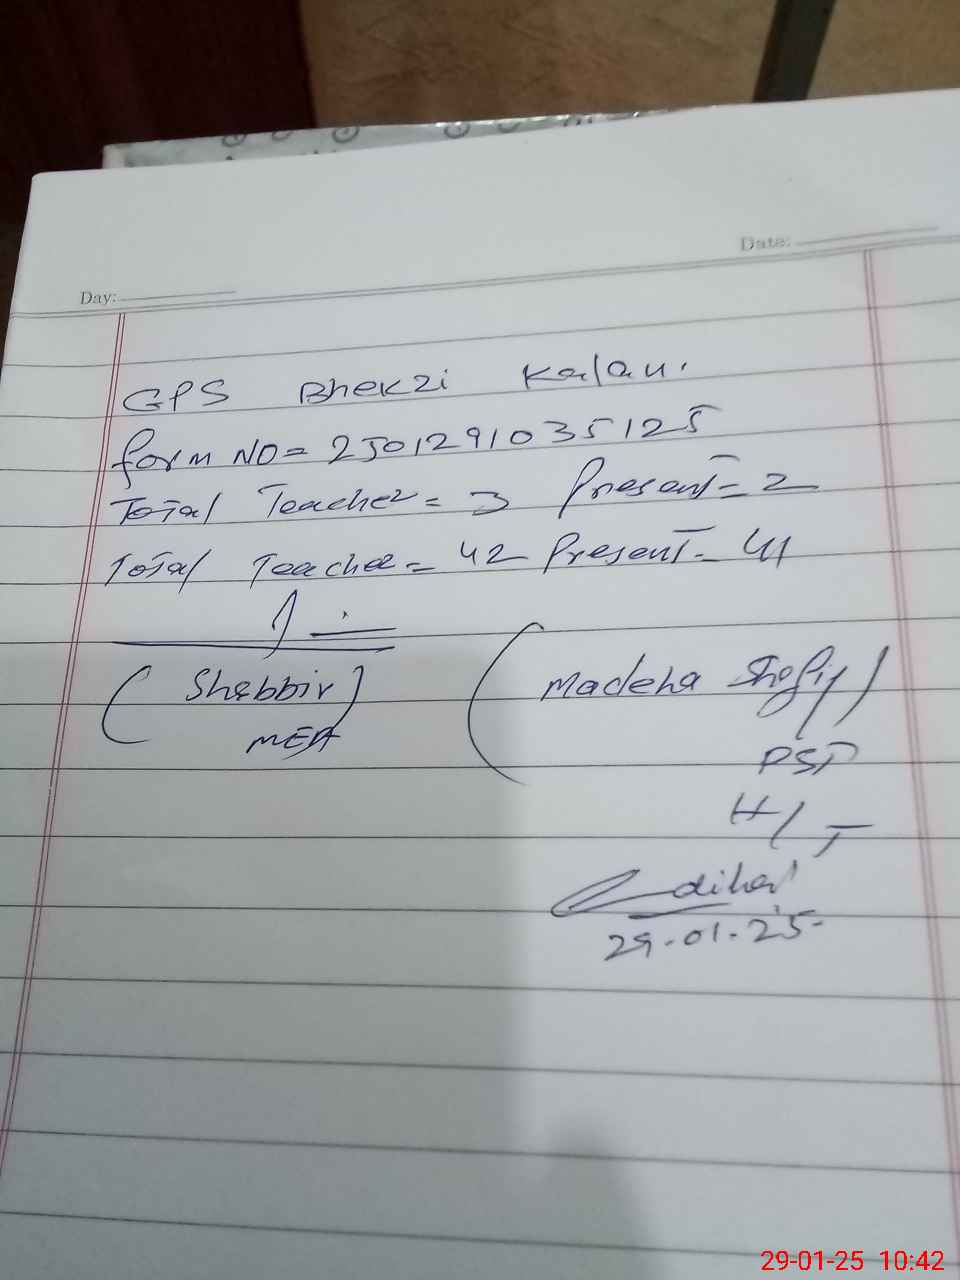 Date:
Day:
GPS Bhekzi Kalan.
form NO = 2501291035125
Total Teacher = 3 Present = 2
Total Teacher = 42 Present = 41
(Shabbir) (Madeha Shafiq)
MEA
PST
H/T
29-01-25
29-01-25 10:42